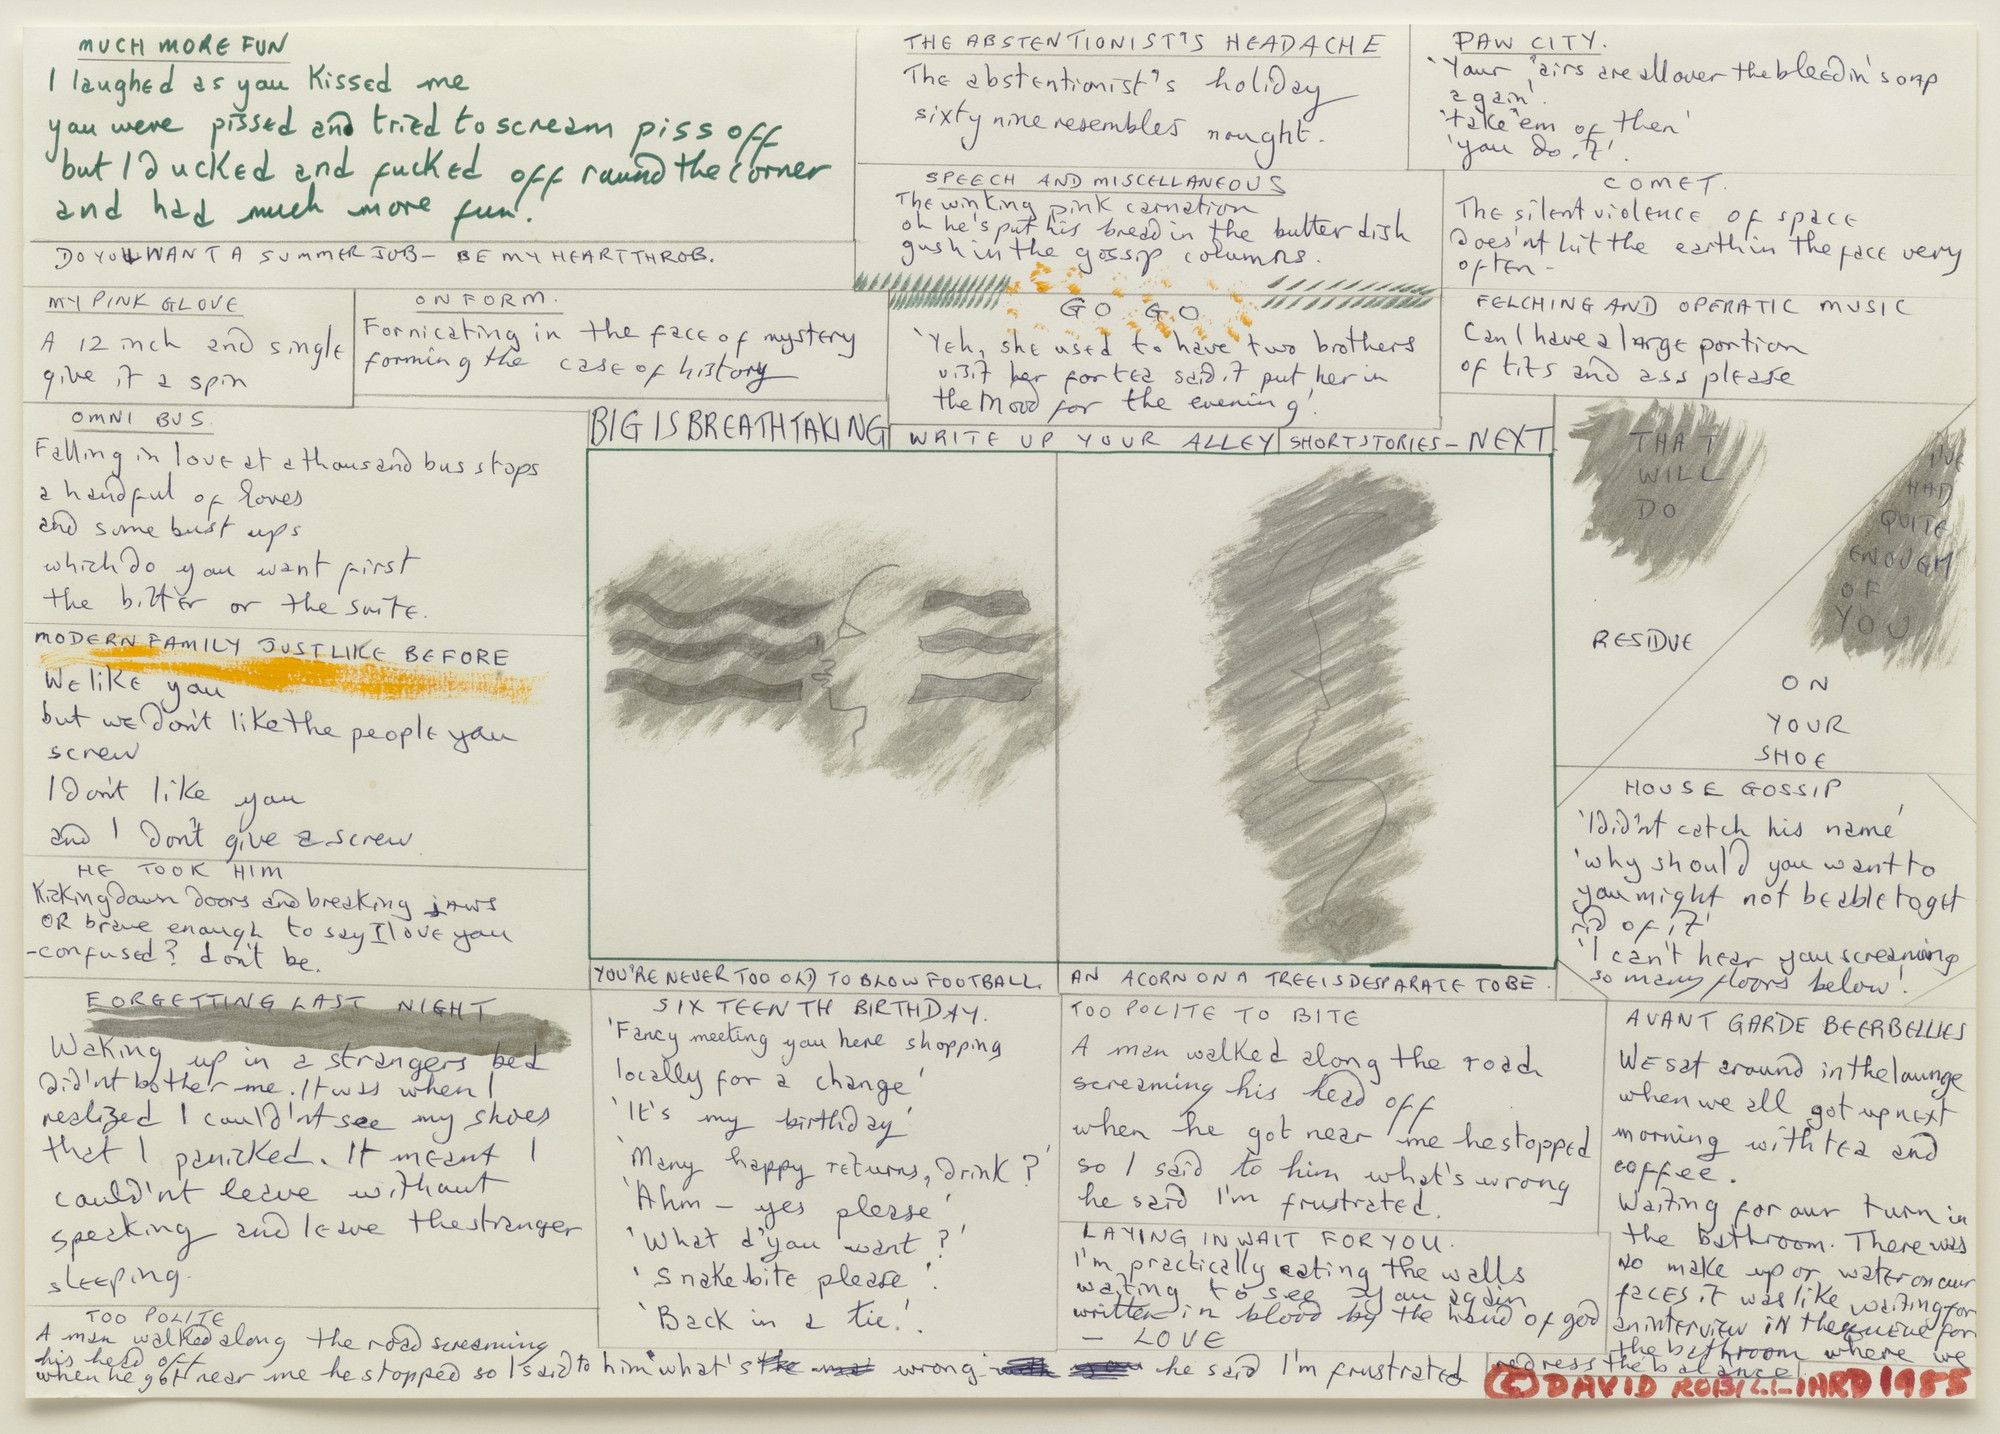 MUCH MORE FUN
I laughed as you kissed me
you were pissed and tried to scream piss off
but I ducked and fucked off round the corner
and had much more fun.
DO YOU WANT A SUMMER JOB – BE MY HEARTTHROB.
MY PINK GLOVE
A 12 inch and single
give it a spin
ON FORM.
Fornicating in the face of mystery
forming the case of history
OMNI BUS.
Falling in love at a thousand bus stops
a handful of loves
and some bust ups
which do you want first
the bitter or the suite.
MODERN FAMILY JUST LIKE BEFORE
We like you
but we don't like the people you
screw
I don't like you
and I don't give a screw.
HE TOOK HIM
Kicking down doors and breaking jaws
OR brave enough to say I love you
-confused? don't be.
FORGETTING LAST NIGHT
Waking up in a strangers bed
did'nt bother me. It was when I
realized I could'nt see my shoes
that I panicked. It meant I
could'nt leave without
speaking and leave the stranger
sleeping.
TOO POLITE
A man walked along the road screaming
his head off
when he got near me he stopped so I said to him 'what's the wrong he said I'm frustrated
THE ABSTENTIONIST'S HEADACHE
The abstentionist's holiday
sixty nine resembles nought.
PAW CITY.
'Your 'airs are all over the bleedin' soap
again'.
'take 'em of then'
'you do it'.
SPEECH AND MISCELLANEOUS
The winking pink carnation
oh he's put his bread in the butter dish
gush in the gossip columns.
COMET.
The silent violence of space
does'nt hit the earth in the face very
often -
GO GO
'Yeh, she used to have two brothers
visit her for tea said it put her in
the mood for the evening'.
FELCHING AND OPERATIC MUSIC
Can I have a large portion
of tits and ass please
BIG IS BREATHTAKING
WRITE UP YOUR ALLEY
SHORT STORIES – NEXT
THAT
WILL
DO
I'VE
HAD
QUITE
ENOUGH
OF
YOU
RESIDUE
ON
YOUR
SHOE
HOUSE GOSSIP
'I did'nt catch his name'
'why should you want to
you might not be able to get
rid of it'
'I can't hear you screaming
so many floors below'.
YOU'RE NEVER TOO OLD TO BLOW FOOTBALL.
AN ACORN ON A TREE IS DESPARATE TO BE.
SIXTEENTH BIRTHDAY.
'Fancy meeting you here shopping
locally for a change'
'It's my birthday'
'Many happy returns, drink?'
'Ahm – yes please'
'What d'you want?'
'Snakebite please.'
'Back in a tie'.
TOO POLITE TO BITE
A man walked along the road
screaming his head off
when he got near me he stopped
so I said to him what's wrong
he said I'm frustrated.
LAYING IN WAIT FOR YOU.
I'm practically eating the walls
waiting to see you again
written in blood by the hand of god
– LOVE
AVANT GARDE BEERBELLIES
We sat around in the lounge
when we all got up next
morning with tea and
coffee.
Waiting for our turn in
the bathroom. There was
no make up or water on our
faces, it was like waiting for
an interview IN the queue for
the bathroom where we
redress the balance
© DAVID ROBILLIARD 1985